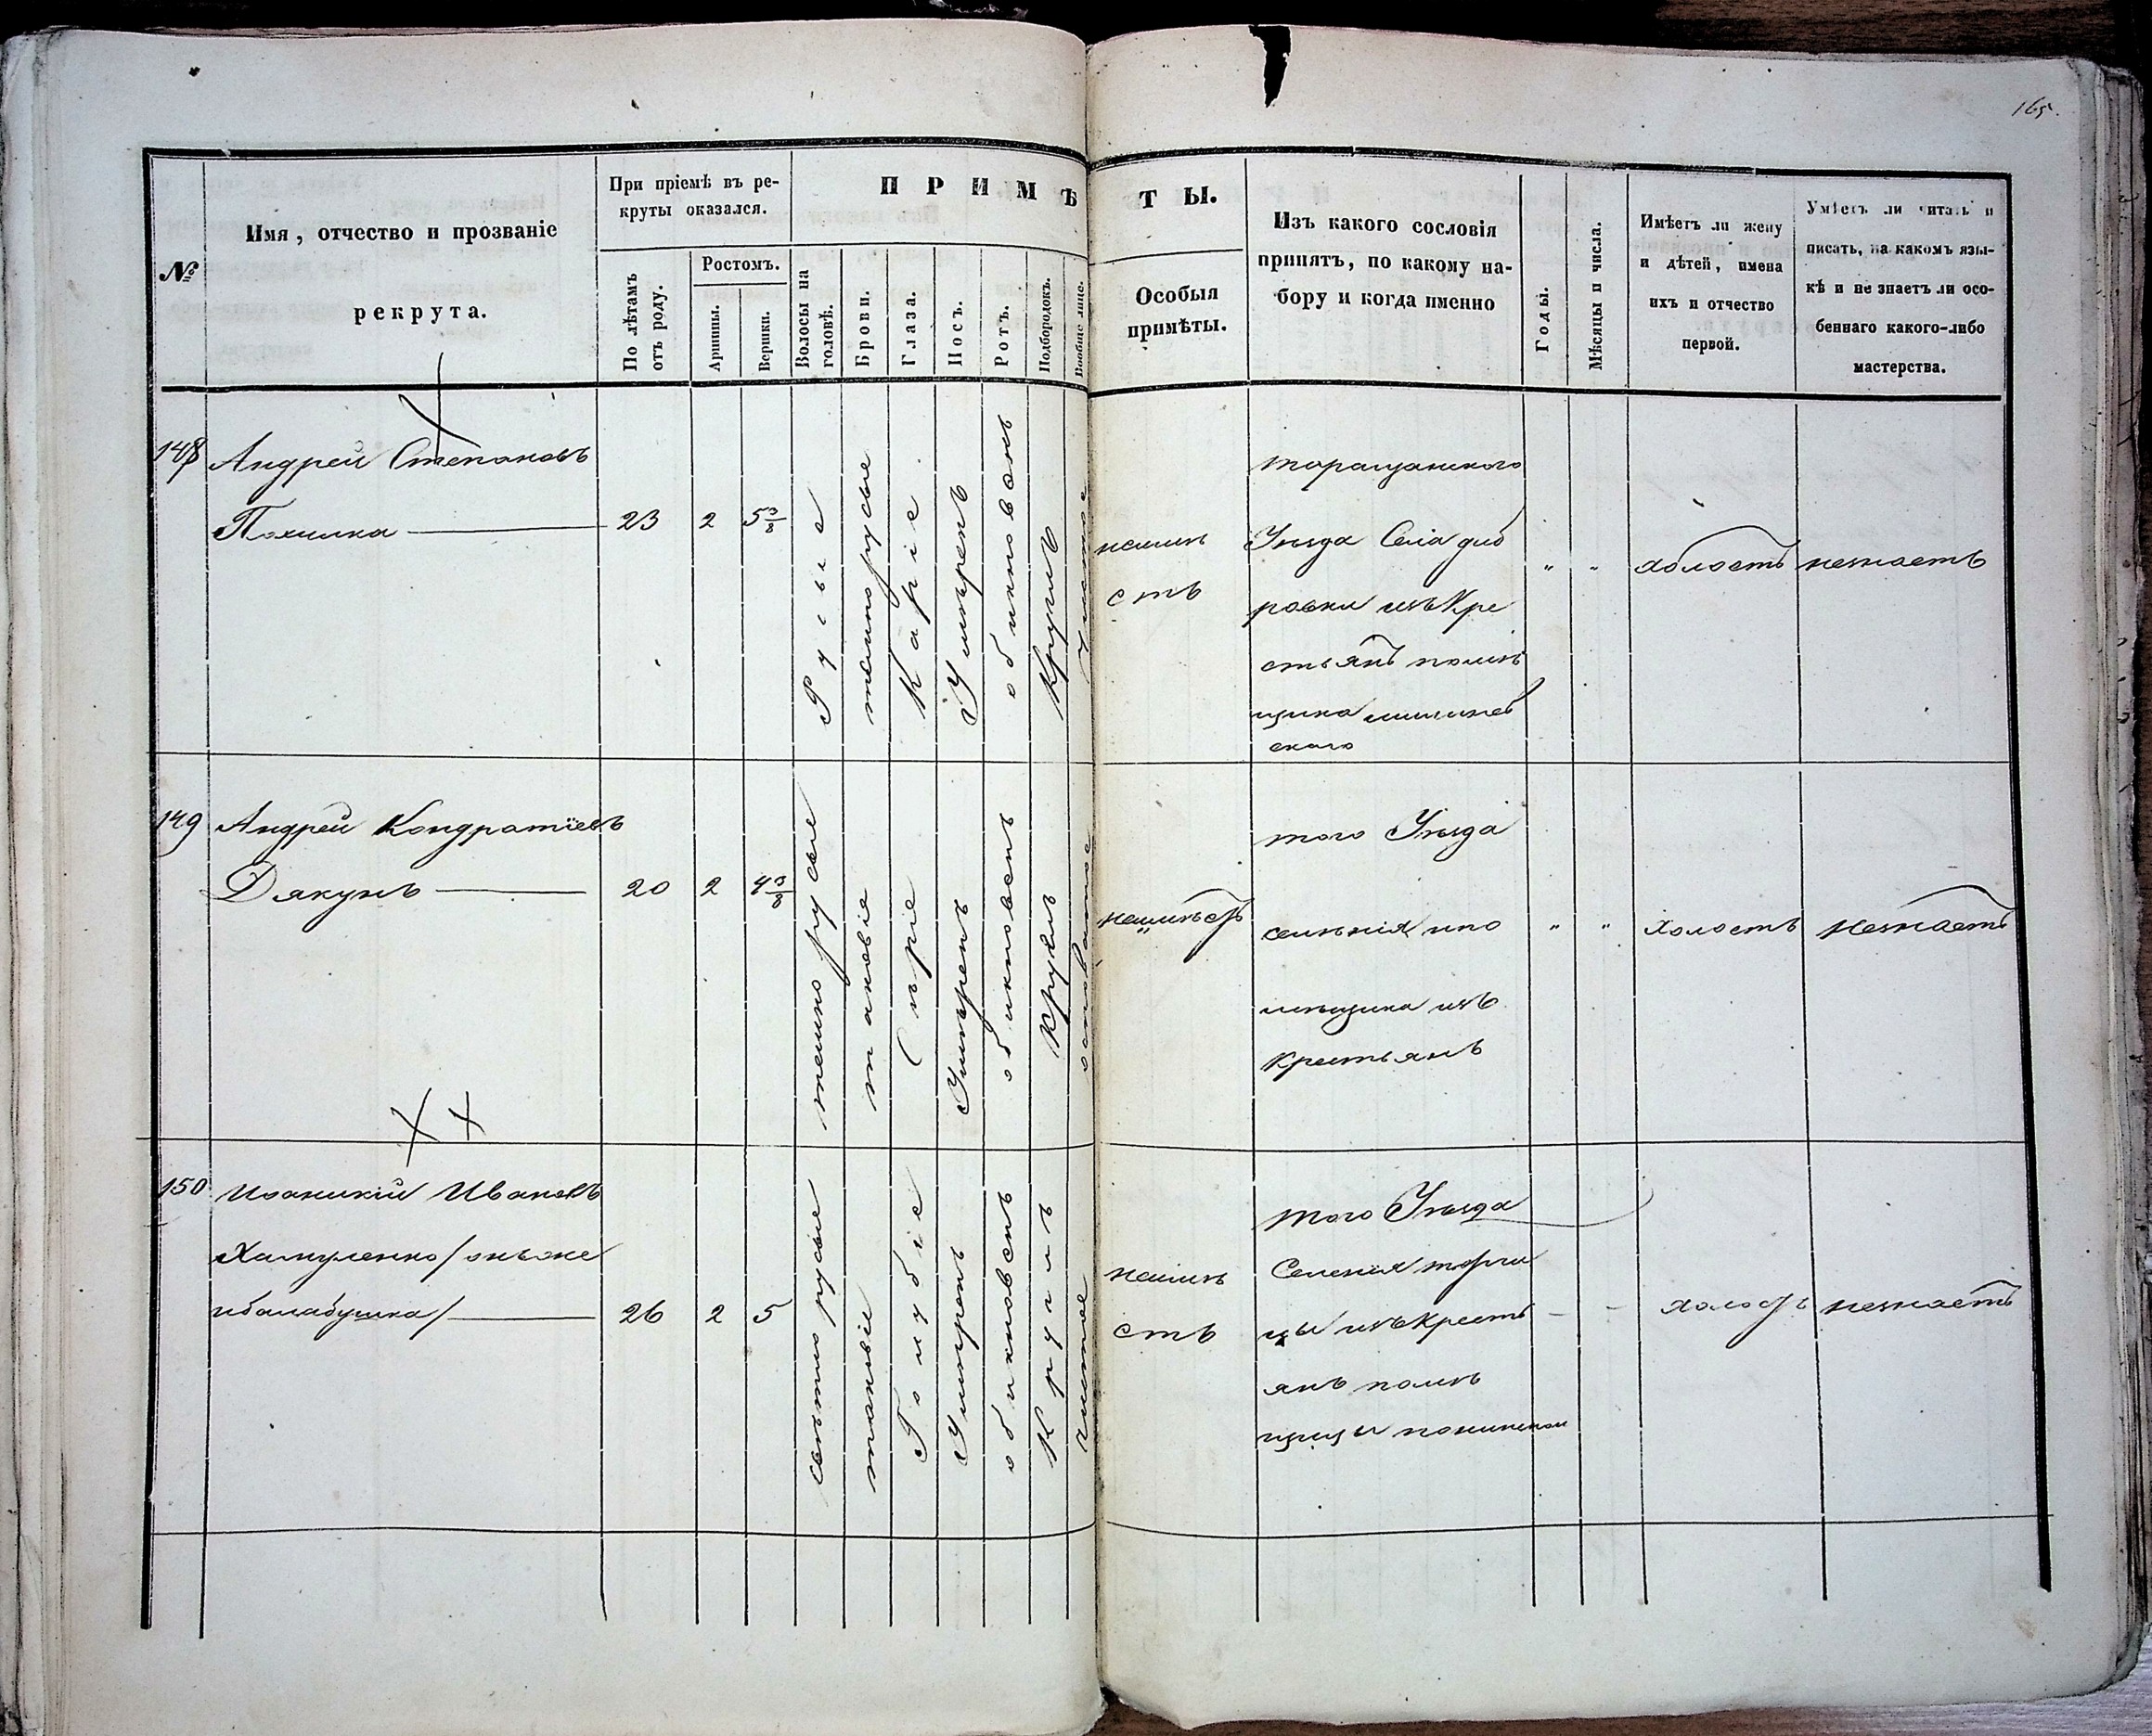 165.
№
Имя, отчество и прозваніе
рекрута.
При пріемѣ въ ре-
круты оказался.
По лѣтамъ
отъ роду.
Ростомъ.
Аршины.
Вершки.
ПРИМѢ
ТЫ.
Волосы на
головѣ.
Брови.
Глаза.
Носъ.
Ротъ.
Подбородокъ.
Вообще лице.
Особыя
примѣты.
Изъ какого сословія
принятъ, по какому на-
бору и когда именно
Годы.
Мѣсяцы и числа.
Имѣетъ ли жену
и дѣтей, имена
ихъ и отчество
первой.
Умѣетъ ли читать и
писать, на какомъ язы-
кѣ и не знаетъ ли осо-
беннаго какого-либо
мастерства.
148
Андрей Степановъ
Похилка
23
2
5 3/8
Русые
темнорусые
Каріе
Умѣренъ
обикновенъ
Круглъ
Чистое
неимѣ
етъ
таращанского
Уѣзда Села диб
ровки изъ Кре
стьянъ помѣ
щика
ского
" "
холостъ
незнаетъ
149
Андрей Кондратіевъ
Дякунъ
20
2
4 3/8
темно русые
таковіе
Сѣріе
Умѣренъ
обикновенъ
Круглъ
осповатое
неимѣетъ
того Уѣзда
селѣнія ипо
мѣщика изъ
Крестьянъ
" "
холостъ
незнаетъ
150
Иоаникій Ивановъ
Хамуленко / онъже
ибалабушка /
26
2
5
свѣтло русые
таковіе
Голубіе
Умѣренъ
обикновенъ
Круглъ
чистое
неимѣ
етъ
того Уѣзда
Селенія торчи
цы изъ Кресть
янъ помѣ
щицы
- -
холостъ
незнаетъ